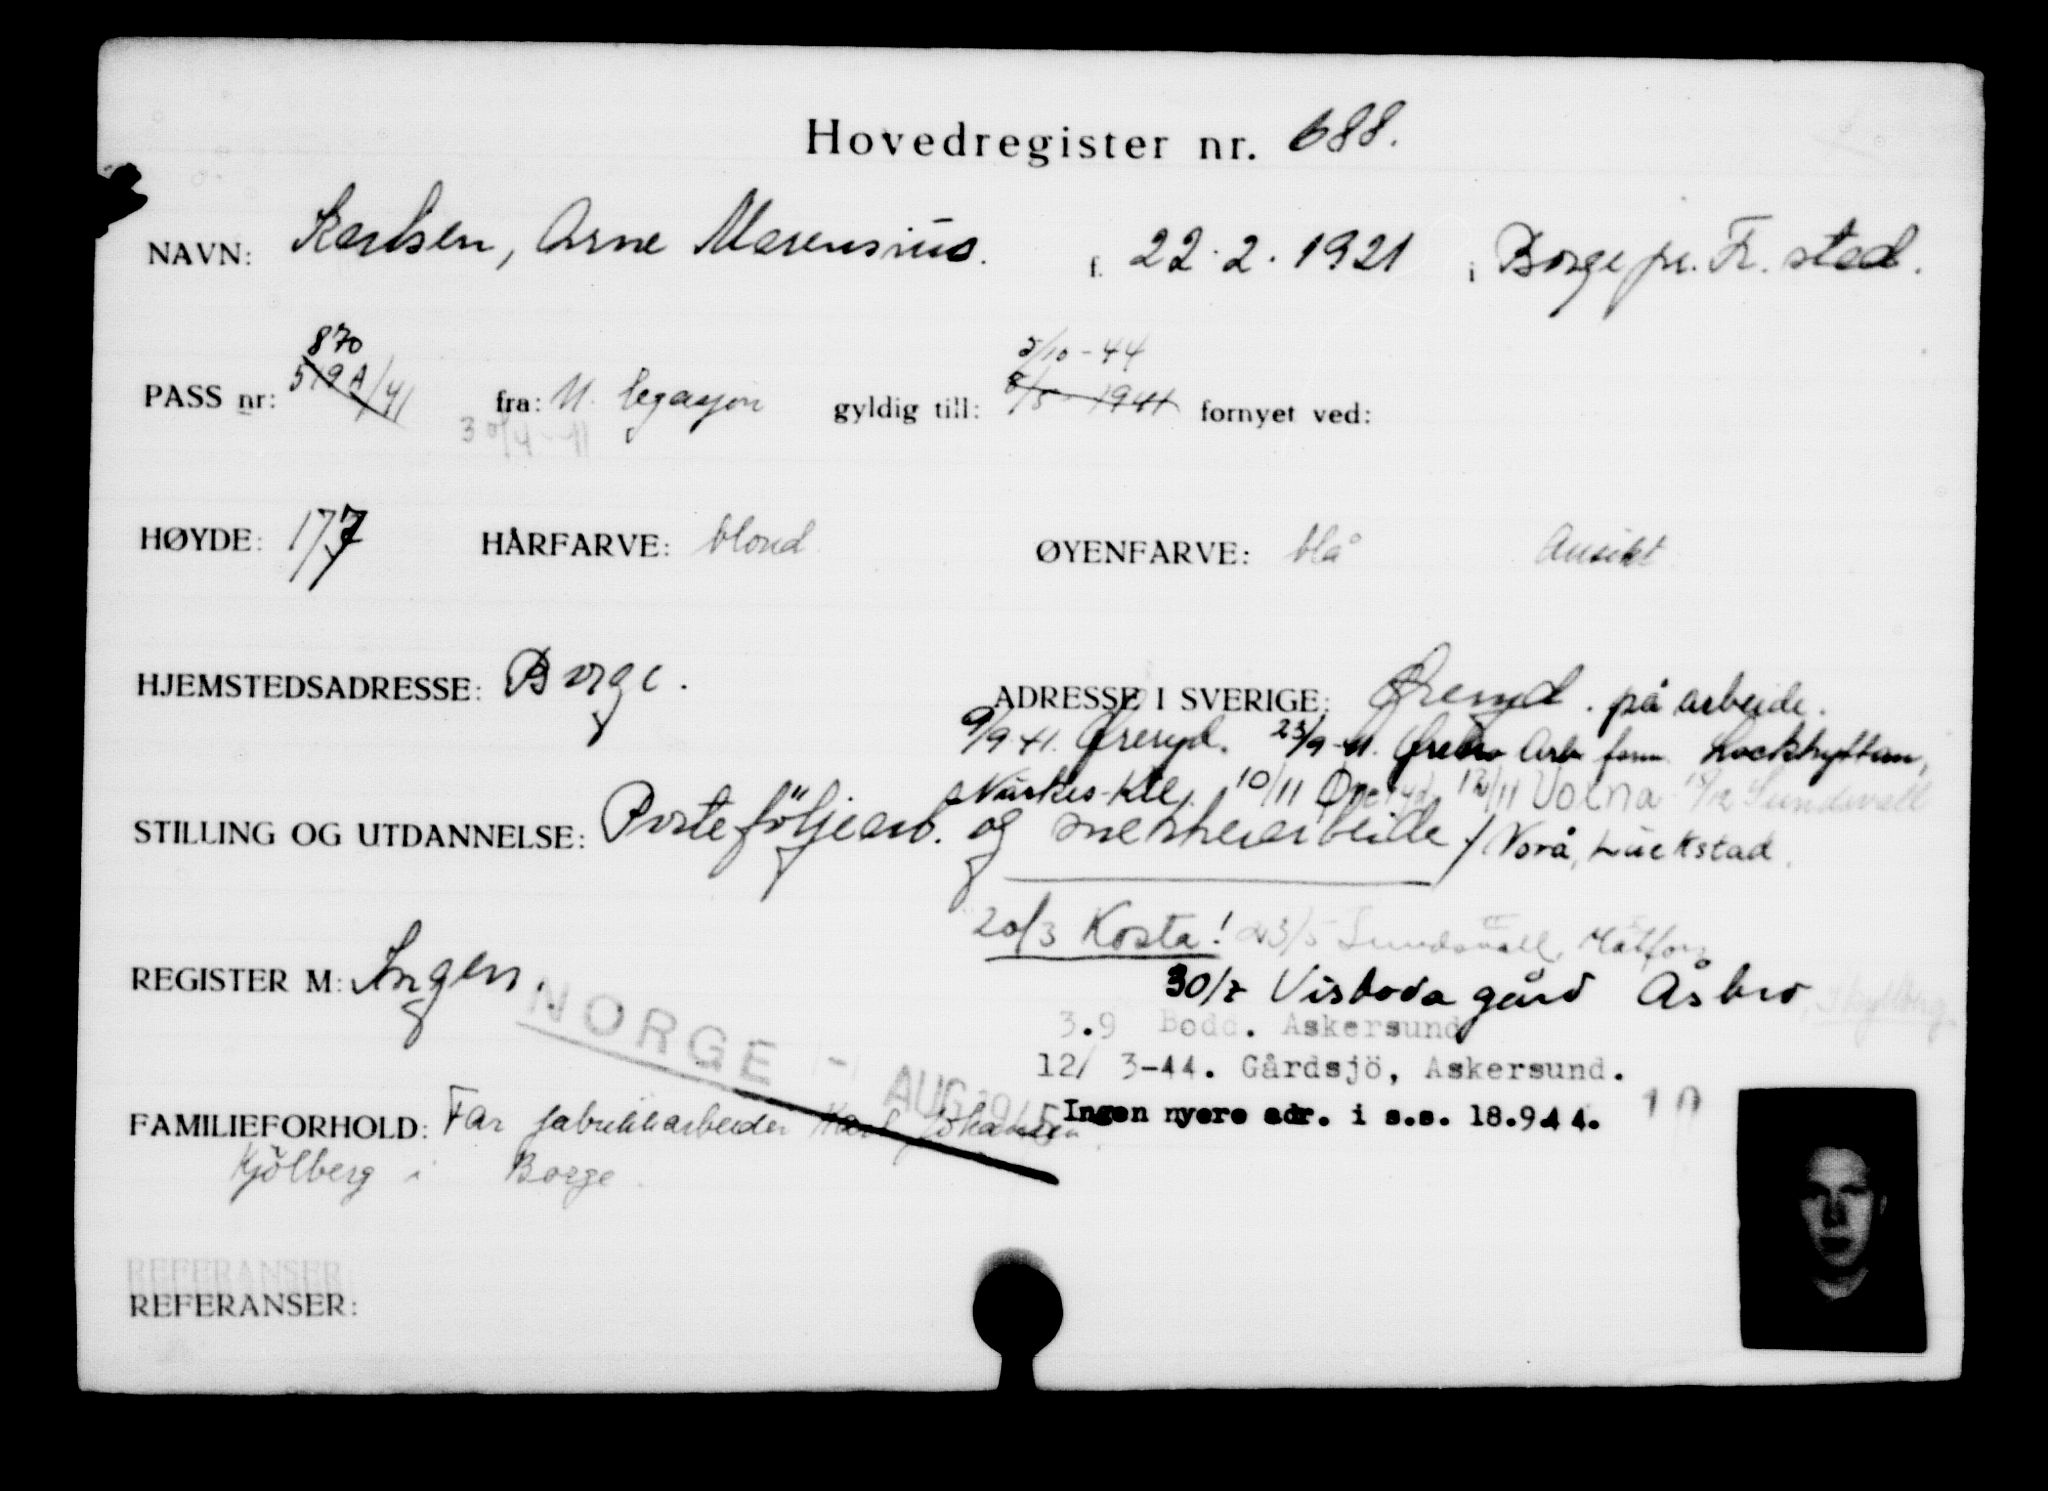 Hovedregister nr. 688.
NAVN: Karlsen, Arne Marensius. f. 22.2.1921 i Borge pr. Fr.stad.
870
PASS nr: 519A/41 fra: N. legasjon gyldig till: 8/5 1941 fornyet ved:
5/10-44
30/4-41
HØYDE: 177 HÅRFARVE: blond ØYENFARVE: blå Ansikt
HJEMSTEDSADRESSE: Borge. ADRESSE I SVERIGE: Øreryd. på arbeide.
9/9 41. Øreryd. 23/9-41. Ørebro Arb form. Lockhyttan,
Närkes-Kil. 10/11 Øreryd 12/11 Voxna Sundsvall
STILLING OG UTDANNELSE: Porteföljearb. og snekkerarbeide / Norå, Luckstad.
20/3 Kosta! 23/5 Sundsvall, Matfors
REGISTER M: Ingen. 30/7 Visboda gård Åsbro,
NORGE 1- AUG 1945
3.9 Bodd. Askersund
12/ 3-44. Gårdsjö, Askersund.
Ingen nyere adr. i s.s. 18.9.44.
FAMILIEFORHOLD: Far fabrikkarbeider Karl Johansen.
Kjölberg i Borge.
REFERANSER
REFERANSER: